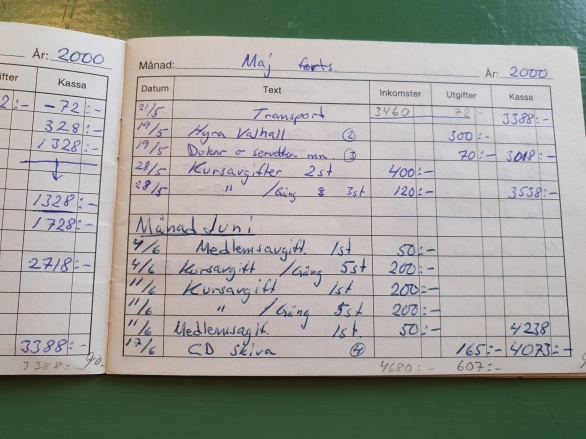 År: 2000
ifter Kassa
2:- -72:-
328:-
1328:-
1328:-
1728:-
2718:-
3388:-
3388:-
Månad: Maj forts. År: 2000
Datum Text Inkomster Utgifter Kassa
21/5 Transport 3460 72:- 3388:-
19/5 Hyra Valhall 2 300:-
19/5 Dukar o servetter mm. 3 70:- 3018:-
28/5 Kursavgifter 2st 400:-
28/5 " /Gång 3st 120:- 3538:-
Månad Juni
4/6 Medlemsavgift. 1st 50:-
4/6 Kursavgift /Gång 5st 200:-
11/6 Kursavgift 1st 200:-
11/6 " /Gång 5st 200:-
11/6 Medlemsagift. 1st 50:- 4238
17/6 CD skiva 4 165:- 4073:-
4680:- 607:-